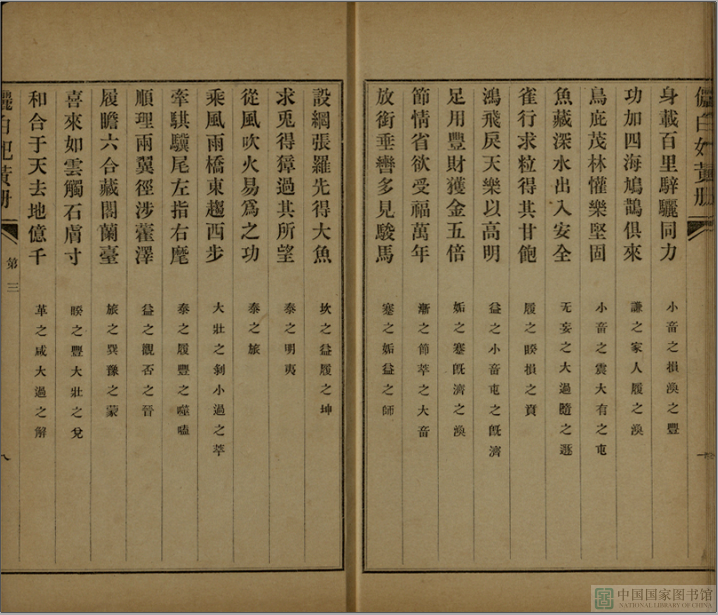 儷白妃黃册
身載百里騂驪同力 小畜之損渙之豐
功加四海鳩鵲俱來 謙之家人履之渙
鳥庇茂林懽樂堅固 小畜之震大有之屯
魚藏深水出入安全 无妄之大過隨之遯
雀行求粒得其甘飽 履之睽損之賁
鴻飛戾天樂以高明 益之小畜屯之旣濟
足用豐財獲金五倍 姤之蹇旣濟之渙
節情省欲受福萬年 漸之節萃之大畜
放銜垂轡多見駿馬 蹇之姤益之師
設網張羅先得大魚 坎之益履之坤
求兎得獐過其所望 泰之明夷
從風吹火易爲之功 泰之旅
乘風雨橋東趨西步 大壯之剝小過之萃
牽騏驥尾左指右麾 泰之履豐之噬嗑
順理兩翼徑涉藿澤 益之觀否之晉
履瞻六合藏閣蘭臺 旅之巽豫之蒙
喜來如雲觸石膚寸 睽之豐大壯之兌
和合于天去地億千 革之咸大過之解
儷白妃黃册
第三
八
中国国家图书馆
NATIONAL LIBRARY OF CHINA